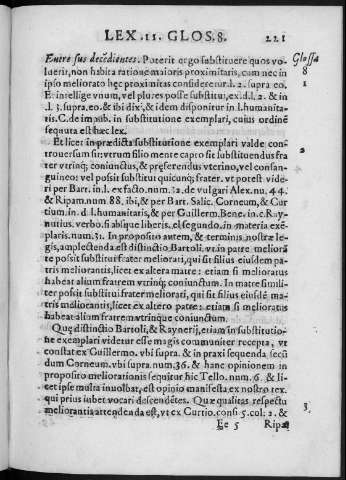 LEX. II. GLOS. 8. 221
Entre sus decẽdientes. Poterit ergo substituere quos vo-
luerit, non habita ratione maioris proximitatis, cum nec in
ipso meliorato hęc proximitas consideretur. d. l. 2. supra eo.
Et intellige vnum, vel plures posse substitui, ex. d. l. 2. & in
.l. 3. supra. eo. & ibi dixi, & idem disponitur in l. humanita-
tis. C. de impub. in substitutione exemplari, cuius ordinẽ
sequuta est hæc lex.
Et licet in prædicta substitutione exemplari valde con-
trouersum sit: vtrum filio mente capto sit substituendus fra
ter vtrinq; coniunctus, & præferendus vterino, vel consan-
guineo: vel possit substitui quicunq; frater. vt potest vide-
ri per Bart. in. l. ex facto. num. 32. de vulgari Alex. nu. 44.
& Ripam. num. 88. ibi, & per Bart. Salic. Corneum, & Cur
tium. in d. l. humanitatis, & per Guillerm. Bene. in c. Ray-
nutius. verbo. si absque liberis. el segundo. in materia exẽ-
plaris. num. 31. In proposito autem, & terminis nostræ le-
gis, amplectenda est distinctio Bartoli. vt in patre meliorã
te possit substitui frater meliorati, qui sit filius eiusdem pa-
tris meliorantis, licet ex altera matre: etiam si melioratus
habeat alium fratrem vtrinq; coniunctum. In matre simili-
ter possit substitui frater meliorati, qui sit filius eiusdẽ ma-
tris meliorantis, licet ex altero patre: etiam si melioratus
habeat alium fratrem vtrinque coniunctum.
Quę distinctio Bartoli, & Raynerij, etiam in substitutio-
ne exemplari videtur esse magis communiter recepta, vt
constat ex Guillermo. vbi supra. & in praxi sequenda secũ
dum Corneum. vbi supra. num. 36. & hanc opinionem in
proposito meliorationis sequitur hic Tello. num. 6. & li-
cet ipse multa inuolbat, est opinio manifesta ex nostro tex.
qui prius iubet vocari descendẽtes. Quæ qualitas respectu
meliorantis attendenda est, vt ex Curtio. consi 5. col. 2. &
Ee 5 Ripa
Glossa
8
1
2
3